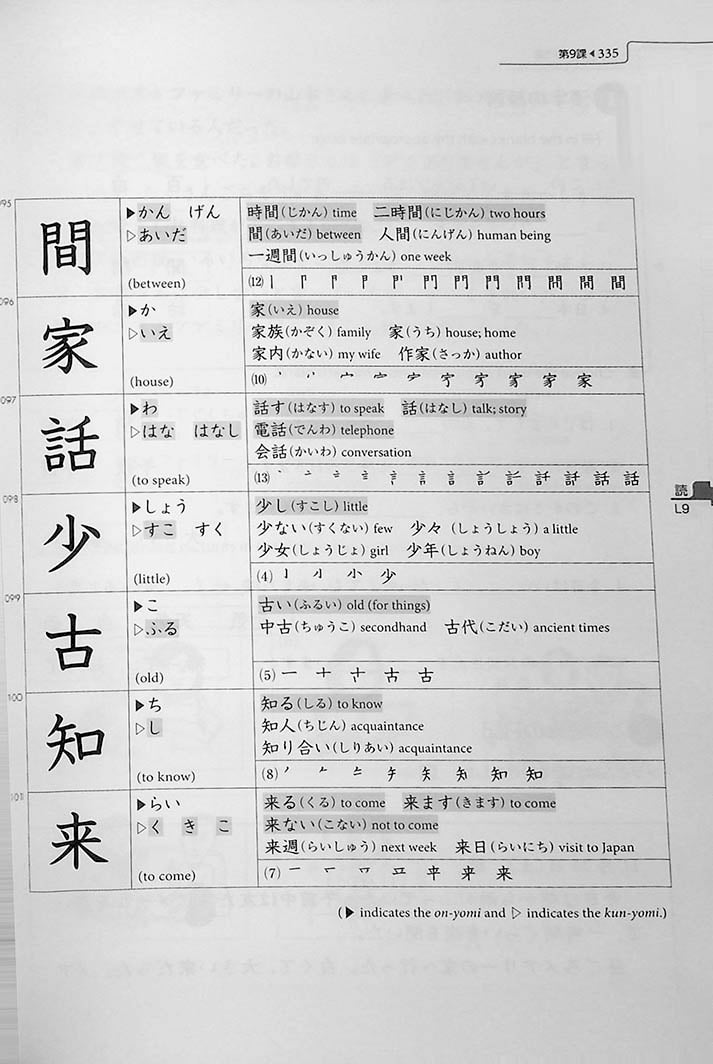 第9課◀335
095
間
▶かん げん
▷あいだ
(between)
時間(じかん) time 二時間(にじかん) two hours
間(あいだ) between 人間(にんげん) human being
一週間(いっしゅうかん) one week
(12)
096
家
▶か
▷いえ
(house)
家(いえ) house
家族(かぞく) family 家(うち) house; home
家内(かない) my wife 作家(さっか) author
(10)
097
話
▶わ
▷はな はなし
(to speak)
話す(はなす) to speak 話(はなし) talk; story
電話(でんわ) telephone
会話(かいわ) conversation
(13)
098
少
▶しょう
▷すこ すく
(little)
少し(すこし) little
少ない(すくない) few 少々(しょうしょう) a little
少女(しょうじょ) girl 少年(しょうねん) boy
(4)
099
古
▶こ
▷ふる
(old)
古い(ふるい) old (for things)
中古(ちゅうこ) secondhand 古代(こだい) ancient times
(5)
100
知
▶ち
▷し
(to know)
知る(しる) to know
知人(ちじん) acquaintance
知り合い(しりあい) acquaintance
(8)
101
来
▶らい
▷く き こ
(to come)
来る(くる) to come 来ます(きます) to come
来ない(こない) not to come
来週(らいしゅう) next week 来日(らいにち) visit to Japan
(7)
読
L9
(▶ indicates the on-yomi and ▷ indicates the kun-yomi.)